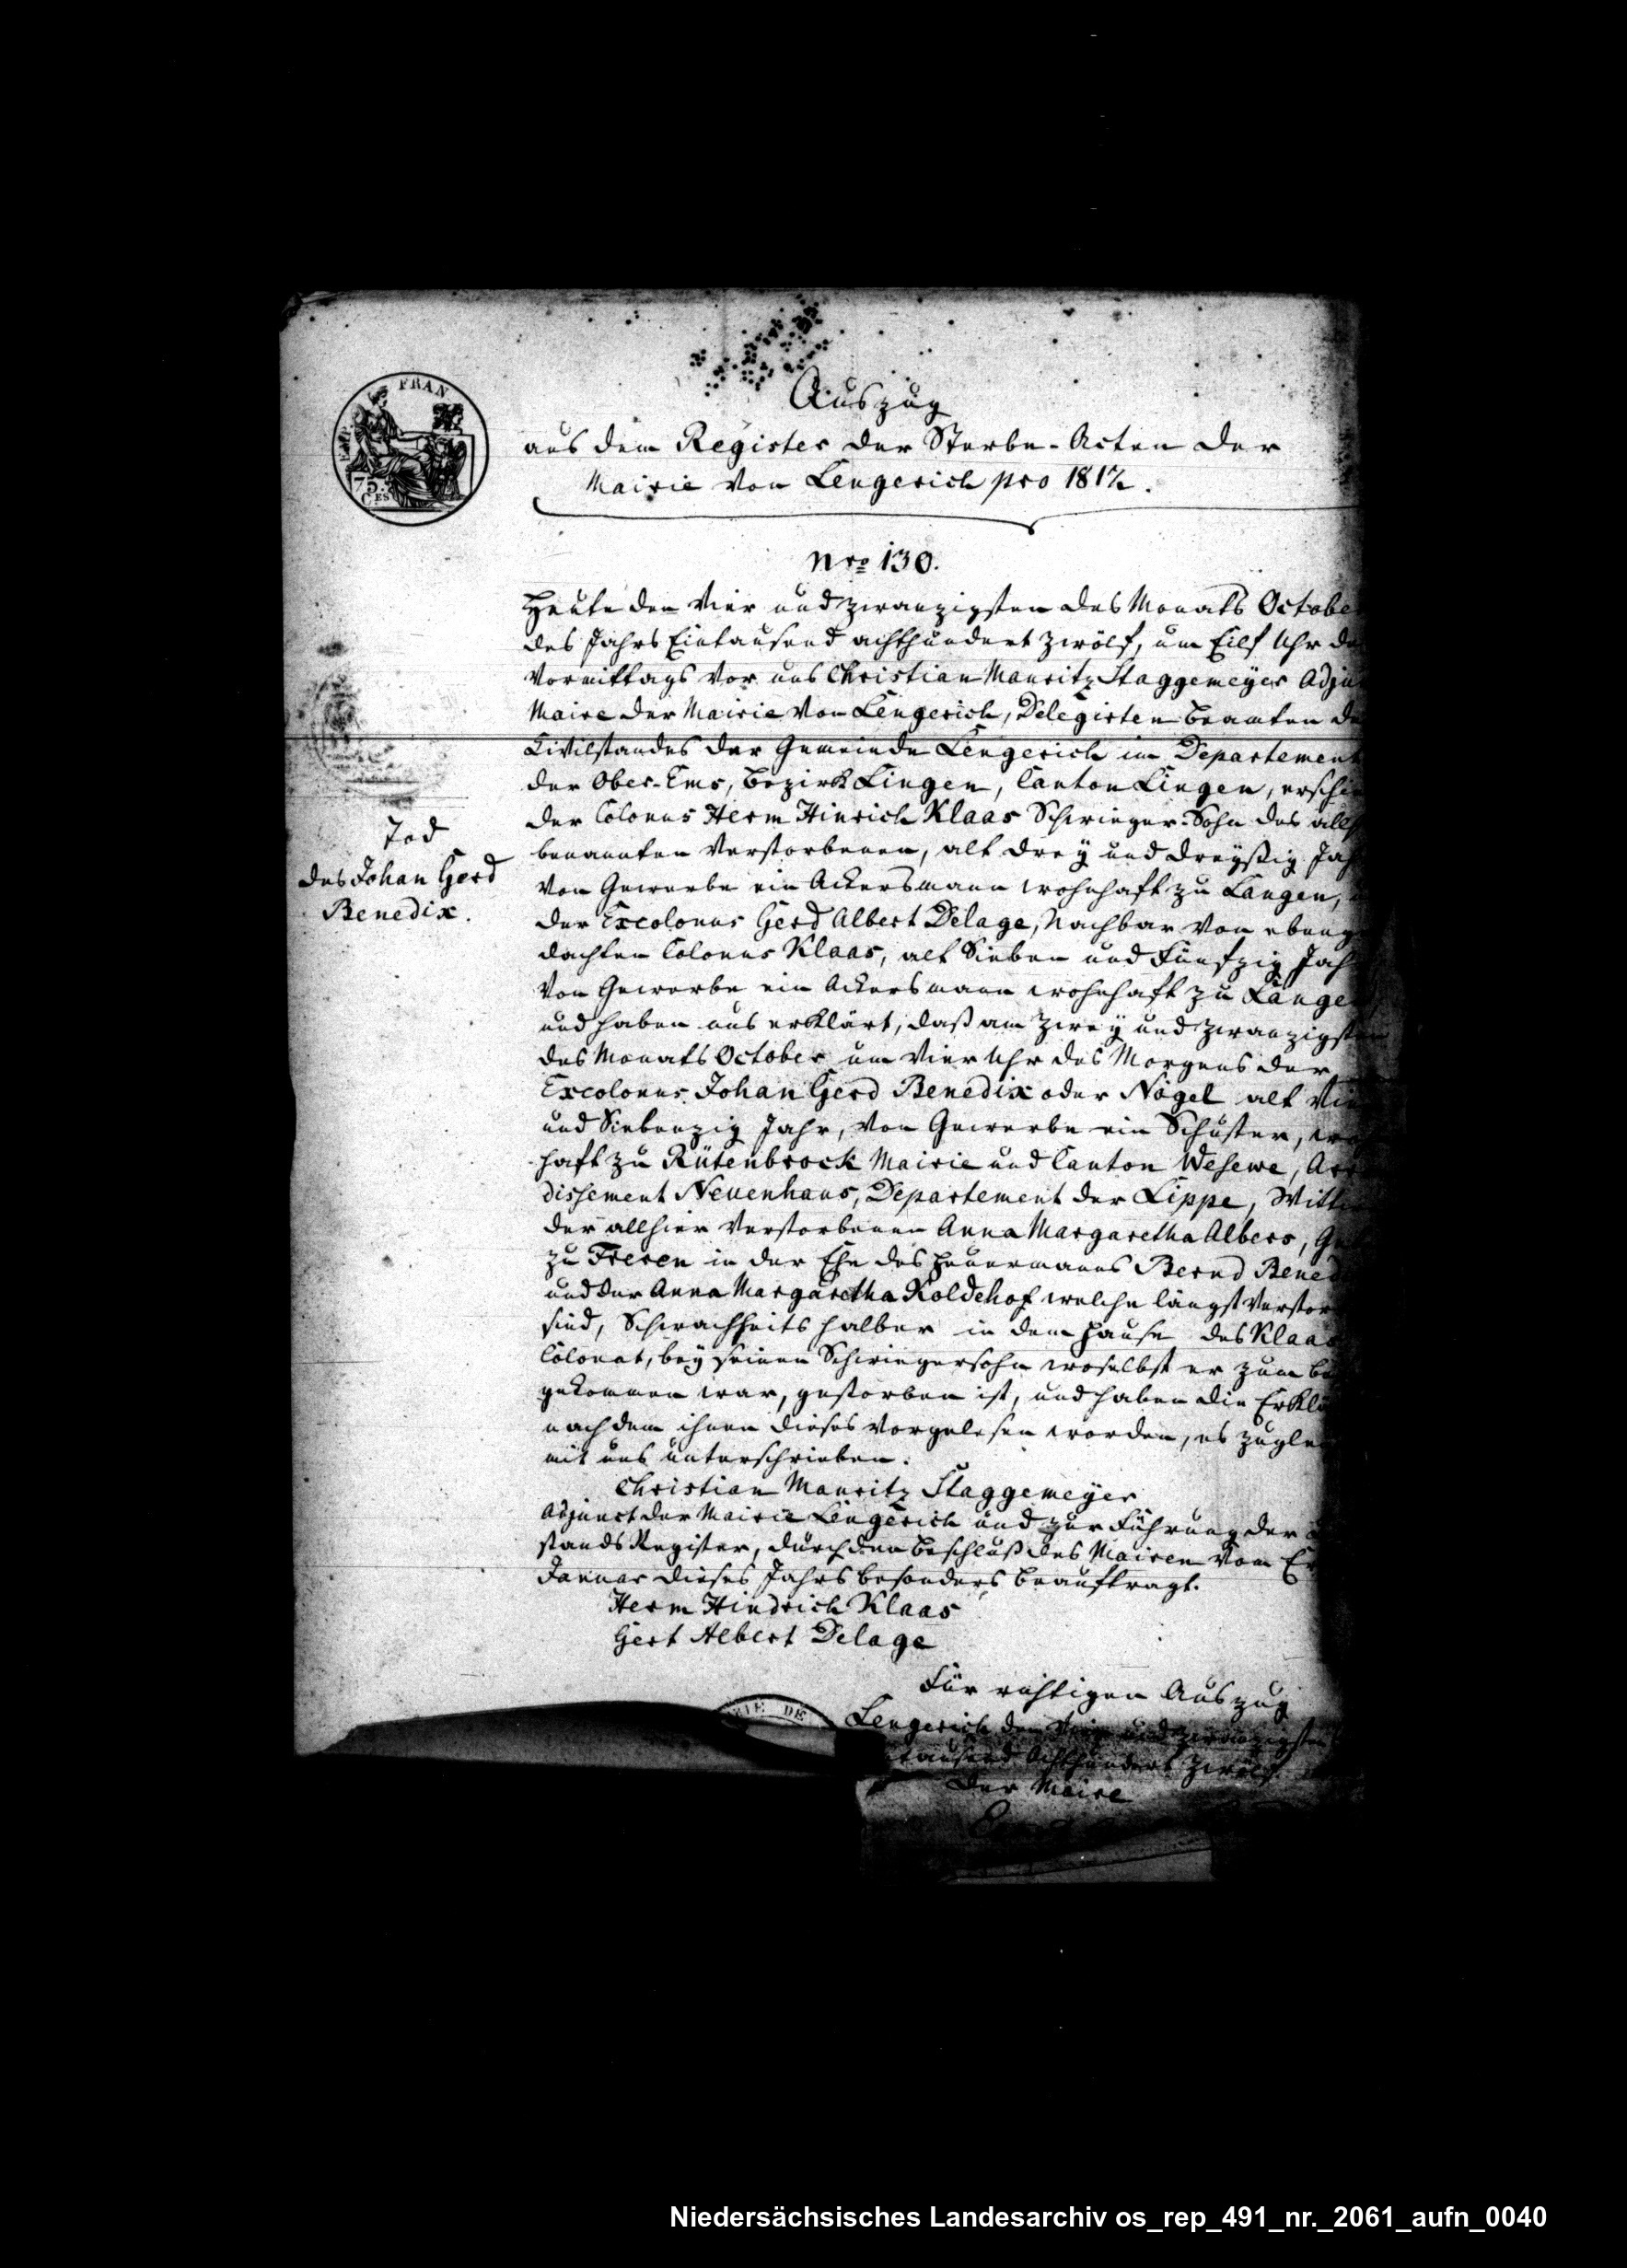 FRAN
EMP.
75.
C.ES
Auszug
aus dem Register der Sterbe-Acten der
Mairie von Lengerich pro 1812.
Nro 130.
Heute den Vier und zwanzigsten des Monats Octobe
des Jahrs Eintausend achthundert zwölf, um Eilf Uhr de
Vormittags vor uns Christian Mauritz Staggemeyer Adju
Maire der Mairie von Lengerich, Delegirten Beamten de
Civilstandes der Gemeinde Lengerich im Departement
der Ober-Ems, Bezirk Lingen, Canton Lingen, erschie
der Colonus Herm Hinrich Klaas Schwieger-Sohn des allh
benannten Verstorbenen, alt drey und dreyßig Jah
von Gewerbe ein Ackersmann wohnhaft zu Langen,
der Excolonus Gerd Albert Delage, Nachbar von ebenge
dachten Colonus Klaas, alt Sieben und Fünfzig Jah
von Gewerbe ein Ackersmann wohnhaft zu Lange
und haben uns erklärt, daß am zwey und zwanzigsten
des Monats October um Vier Uhr des Morgens der
Excolonus Johan Gerd Benedix oder Nögel alt Vie
und Siebenzig Jahr, von Gewerbe ein Schuster, wo
haft zu Rütenbrock Mairie und Canton Wesewe, Arr
dissement Neuenhaus, Departement der Lippe, Witt
der allhier verstorbenen Anna Margaretha Albers, Ge
zu Freren in der Ehe des Heuermanns Bernd Bened
und der Anna Margaretha Koldehof welche längst verstor
sind, Schwachheits halber in dem Hause des Klaas
Colonat, bey seinen Schwiegersohn woselbst er zum Be
gekommen war, gestorben ist, und haben die Erklä
nachdem ihnen dieses vorgelesen worden, es zuglei
mit uns unterschrieben.
Christian Mauritz Staggemeyer
Adjunct der Mairie Lengerich und zur Führung der
stands Register, durch den Beschluß des Mairen vom Er
Januar dieses Jahrs besonders beauftragt.
Herm Hindrich Klaas
Gert Albert Delage
Tod
des Johan Gerd
Benedix.
Für richtigen Auszug
Lengerich den Vier und zwanzigsten
tausend Achthundert zwölf.
Der Maire
RIE DE
Niedersächsisches Landesarchiv os_rep_491_nr._2061_aufn_0040